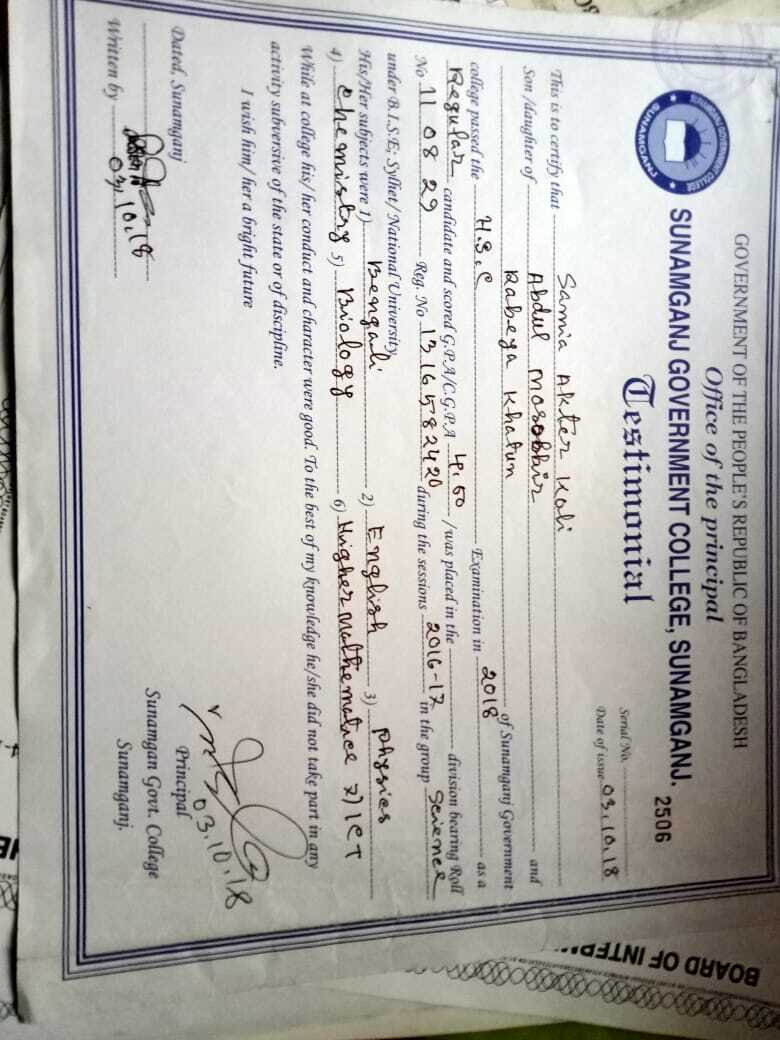 GOVERNMENT OF THE PEOPLE'S REPUBLIC OF BANGLADESH
Office of the principal
SUNAMGANJ GOVERNMENT COLLEGE, SUNAMGANJ.
SUNAMGANJ GOVERNMENT COLLEGE
SUNAMGANJ
2506
Testimonial
Serial No.
Date of issue 03.10.18
This is to certify that Samia Akter Koli
Son /daughter of Abdul Mosobbir and
Rabeya Khatun of Sunamganj Government
college passed the H.S.C Examination in 2018 as a
Regular candidate and scored G.P.A/C.G.P.A 4.50 /was placed in the division bearing Roll
No 11 08 29 Reg. No 1316582420 during the sessions 2016-17 in the group Science
under B.I.S.E; Sylhet/ National University,
His/Her subjects were 1) Bengali 2) English 3) Physics
4) Chemistry 5) Biology 6) Higher Mathematice 7) ICT
While at college his/ her conduct and character were good. To the best of my knowledge he/she did not take part in any
activity subversive of the state or of discipline.
I wish him/ her a bright future
03.10.18
Principal
Sunamgan Govt. College
Sunamganj.
Dated, Sunamganj
Written by 03/10.18
BOARD OF